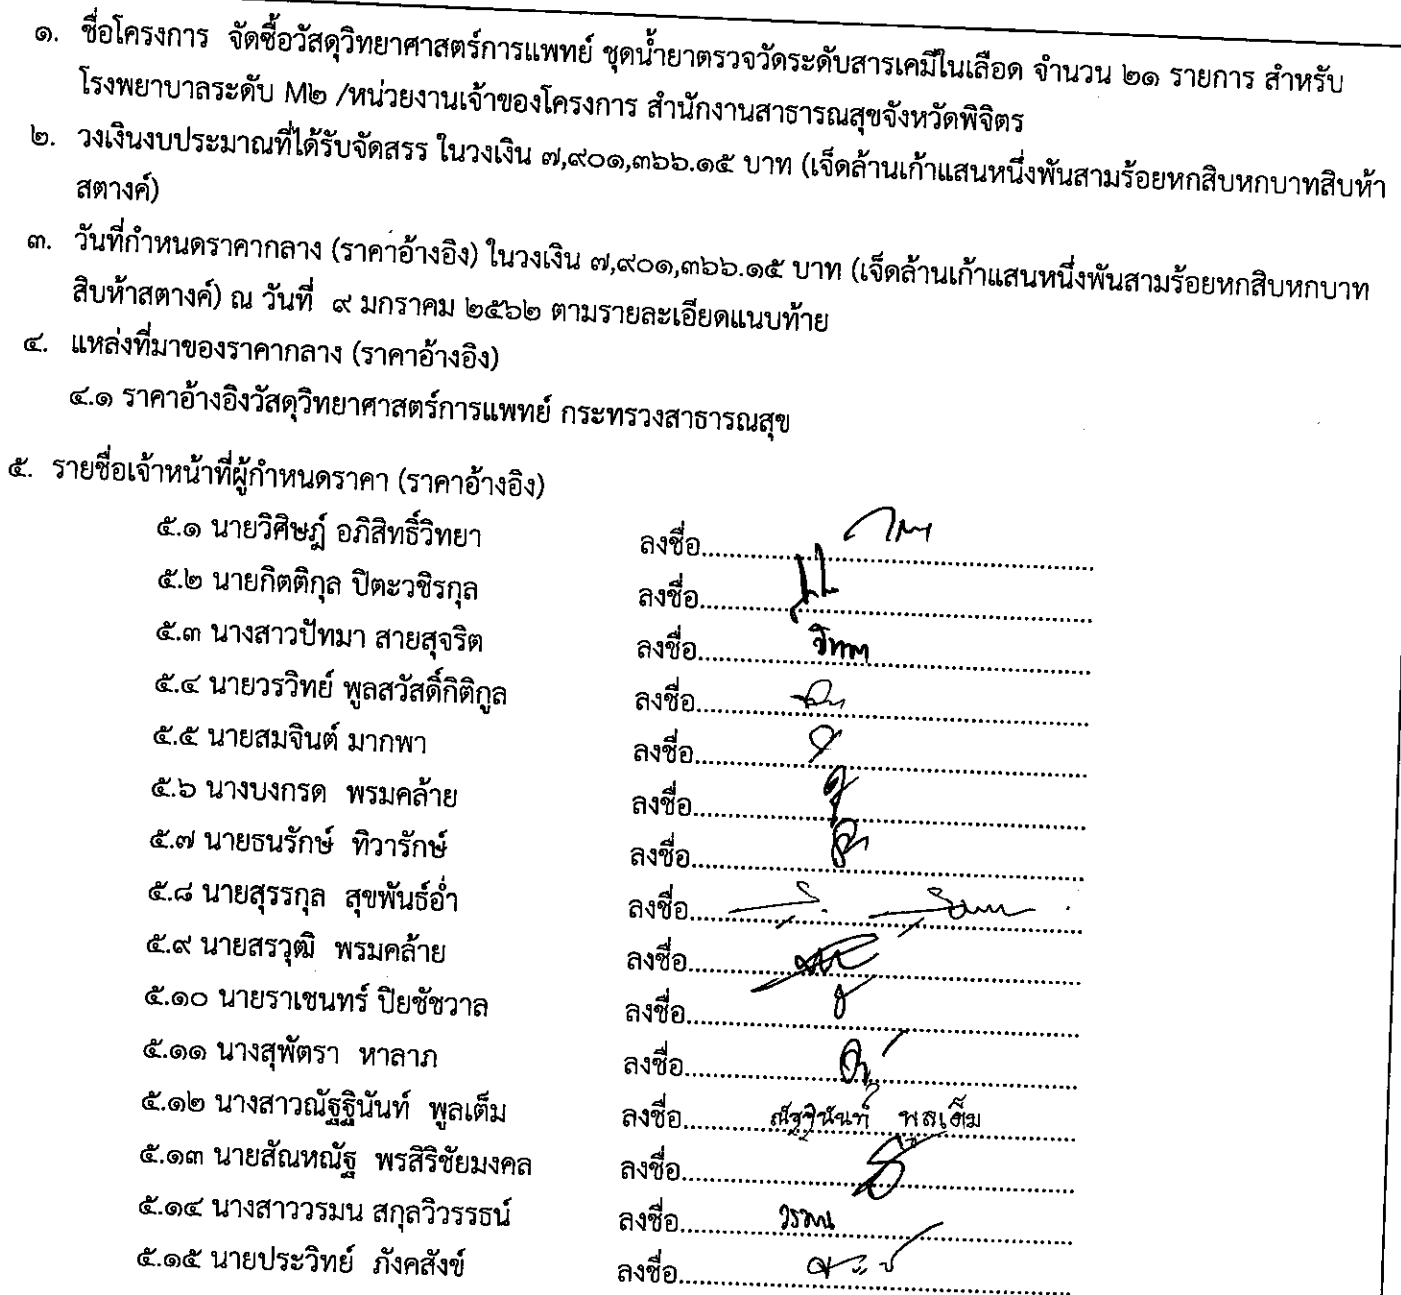 ๑. ชื่อโครงการ จัดซื้อวัสดุวิทยาศาสตร์การแพทย์ ชุดน้ำยาตรวจวัดระดับสารเคมีในเลือด จำนวน ๒๑ รายการ สำหรับ
โรงพยาบาลระดับ M๒ /หน่วยงานเจ้าของโครงการ สำนักงานสาธารณสุขจังหวัดพิจิตร
๒. วงเงินงบประมาณที่ได้รับจัดสรร ในวงเงิน ๗,๙๐๑,๓๖๖.๑๕ บาท (เจ็ดล้านเก้าแสนหนึ่งพันสามร้อยหกสิบหกบาทสิบห้า
สตางค์)
๓. วันที่กำหนดราคากลาง (ราคาอ้างอิง) ในวงเงิน ๗,๙๐๑,๓๖๖.๑๕ บาท (เจ็ดล้านเก้าแสนหนึ่งพันสามร้อยหกสิบหกบาท
สิบห้าสตางค์) ณ วันที่ ๙ มกราคม ๒๕๖๒ ตามรายละเอียดแนบท้าย
๔. แหล่งที่มาของราคากลาง (ราคาอ้างอิง)
๔.๑ ราคาอ้างอิงวัสดุวิทยาศาสตร์การแพทย์ กระทรวงสาธารณสุข
๕. รายชื่อเจ้าหน้าที่ผู้กำหนดราคา (ราคาอ้างอิง)
๕.๑ นายวิศิษฎ์ อภิสิทธิ์วิทยา ลงชื่อ
๕.๒ นายกิตติกุล ปิตะวชิรกุล ลงชื่อ
๕.๓ นางสาวปัทมา สายสุจริต ลงชื่อ
๕.๔ นายวรวิทย์ พูลสวัสดิ์กิติกูล ลงชื่อ
๕.๕ นายสมจินต์ มากพา ลงชื่อ
๕.๖ นางบงกรด พรมคล้าย ลงชื่อ
๕.๗ นายธนรักษ์ ทิวารักษ์ ลงชื่อ
๕.๘ นายสุรรกุล สุขพันธ์อ่ำ ลงชื่อ
๕.๙ นายสรวุฒิ พรมคล้าย ลงชื่อ
๕.๑๐ นายราเชนทร์ ปิยชัชวาล ลงชื่อ
๕.๑๑ นางสุพัตรา หาลาภ ลงชื่อ
๕.๑๒ นางสาวณัฐฐินันท์ พูลเต็ม ลงชื่อ ณัฐฐินันท์ พูลเต็ม
๕.๑๓ นายสัณหณัฐ พรสิริชัยมงคล ลงชื่อ
๕.๑๔ นางสาววรมน สกุลวิวรรธน์ ลงชื่อ วรมน
๕.๑๕ นายประวิทย์ ภังคสังข์ ลงชื่อ